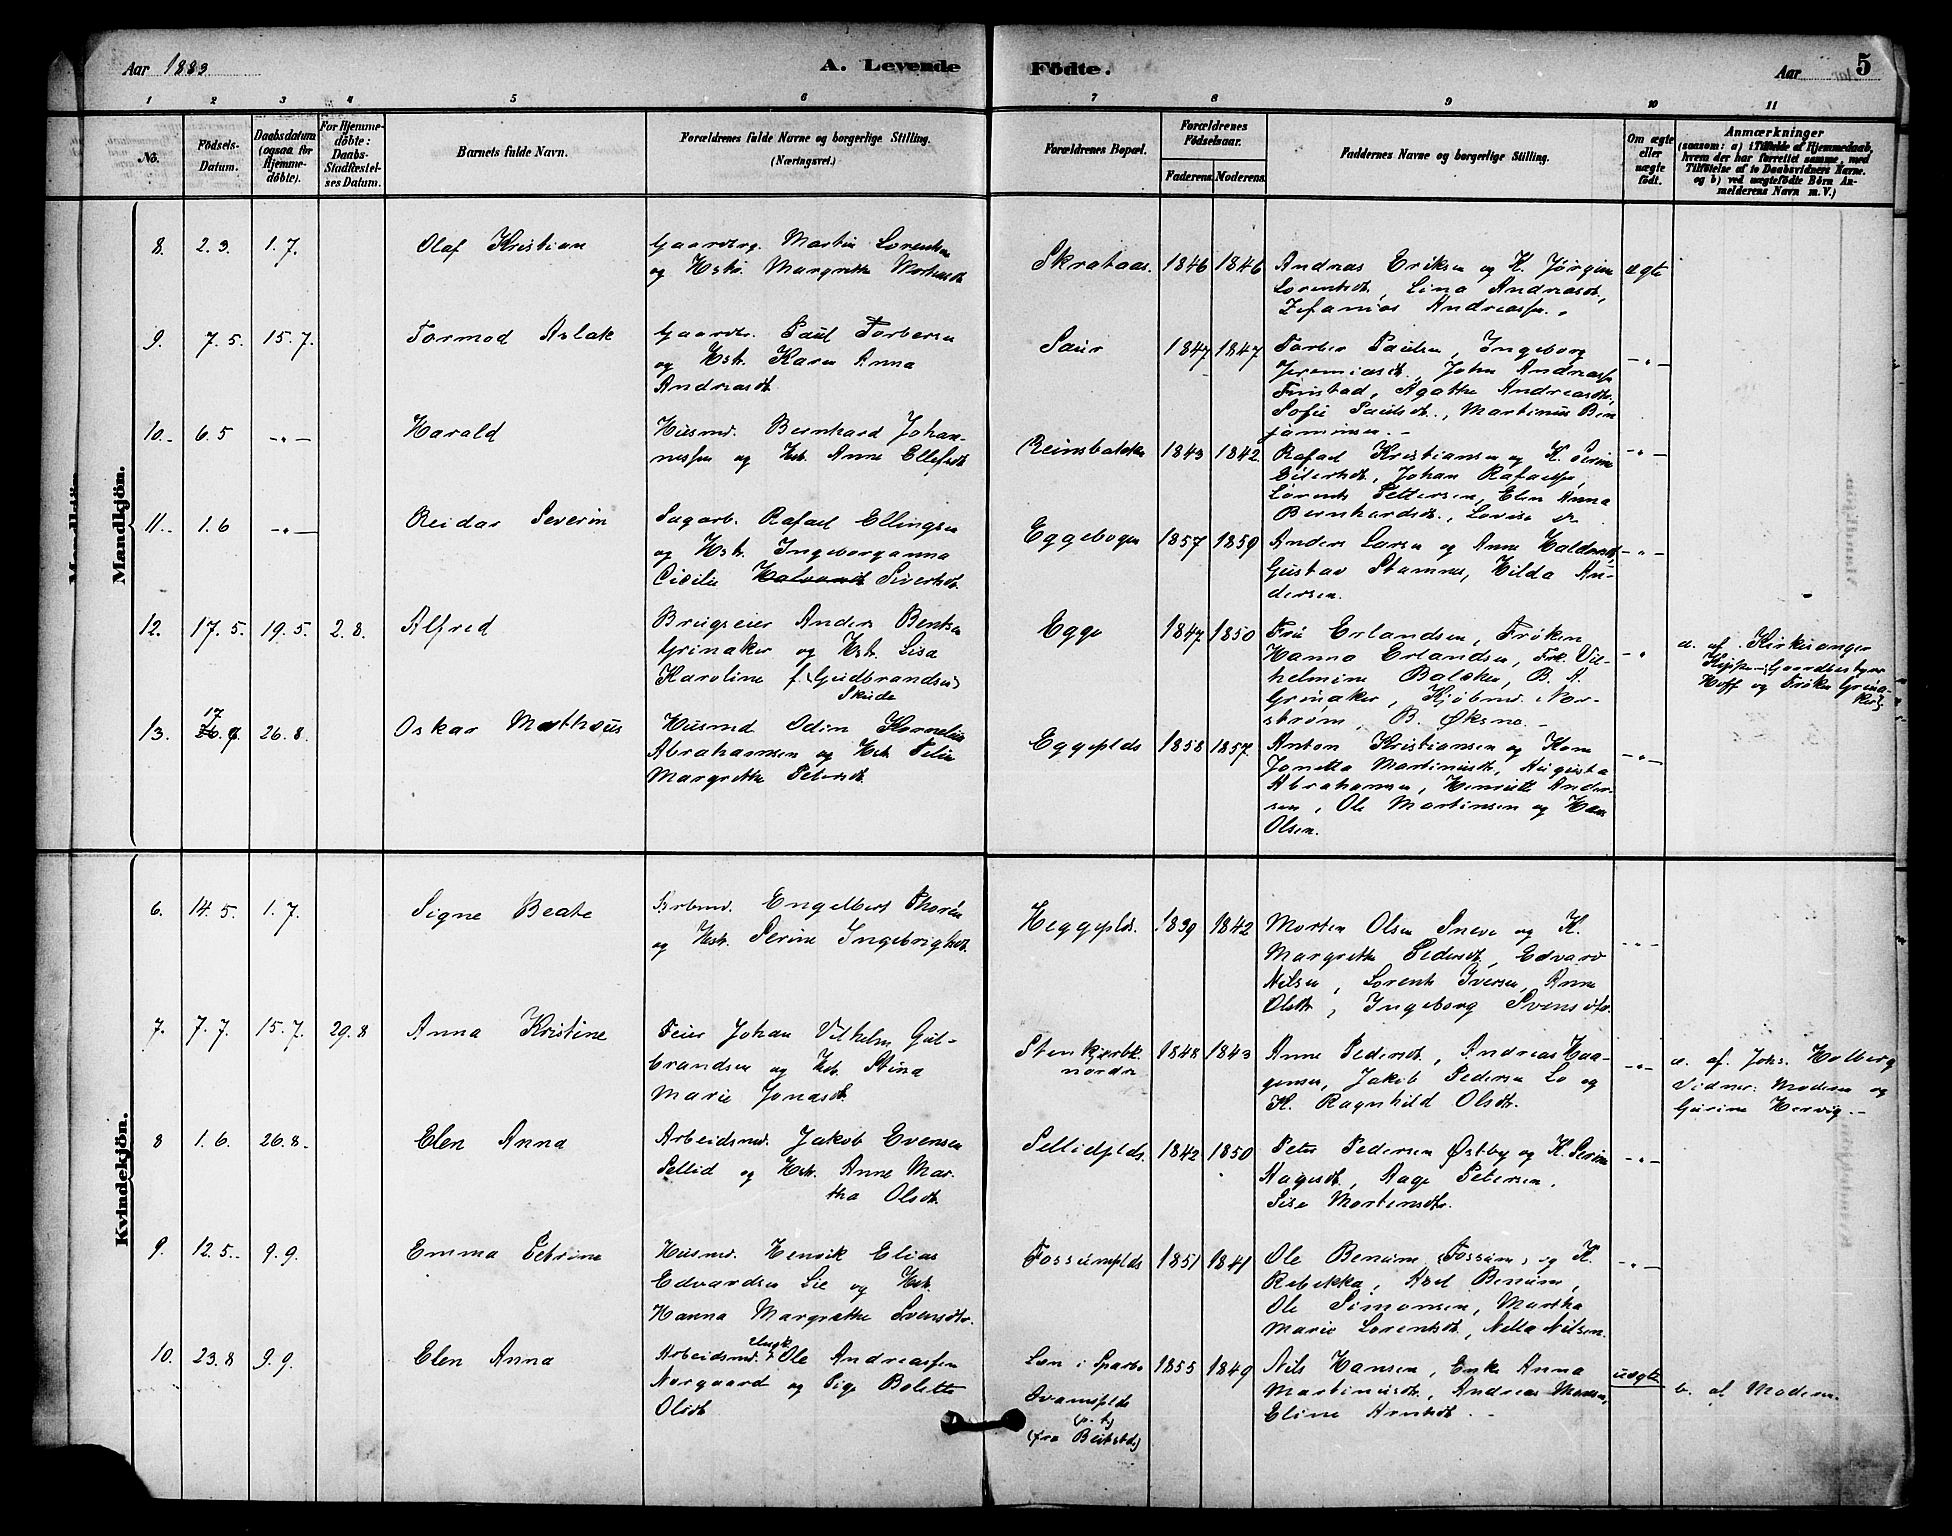 Aar 1883
A. Levende Födte.
Aar 5
1 2 3 4 5 6 7 8 9 10 11
No.
Födsels-
Datum.
Daabsdatum
(ogsaa for
Hjemme-
döbte).
For Hjemme-
döbte:
Daabs-
Stadfæstel-
ses Datum.
Barnets fulde Navn.
Forældrenes fulde Navne og borgerlige Stilling.
(Næringsvei.)
Forældrenes Bopæl.
Forældrenes
Födselsaar.
Faderens. Moderens.
Faddernes Navne og borgerlige Stilling.
Om ægte
eller
uægte
födt.
Anmærkninger
(saasom: a) i Tilfælde af Hjemmedaab,
hvem der har forrettet samme, med
Tilföielse af to Daabsvidners Navne.
og b) ved uægtefödte Börn An-
melderens Navn m. V.)
Mandkjön.
8. 2. 3. 1. 7. Olaf Kristian
Gaardbrg. Martin Lorentsen
og Hstr. Margrethe
Skrataas. 1846 1846
Andreas Eriksen og K. Jørgine
Lorentsdt, Lina Andreasdt,
Zefanias Andreassen.
ægte
9. 7. 5. 15. 7. Tormod Aslak
Gaardbr. Paul Torbersen
og Hstr. Karen Anna
Andreasdt.
Saur 1847 1847
Torber Paulsen, Ingeborg
Jeremiasdt, John Andreassen
Finstad, Agathe Andreasdtr,
Sofie Paulsdt., Martinus Ben
jaminsen. -
-"-
10.- 6. 5 -"- Harald
Husmd. Bernhard Johan-
nessen og Hst. Anne Ellefsdt
Reinsbakken 1843 1842
Rafael Kristiansen og K. Serine
Eilertsdt, Johan Rafaelsen,
Lorents Pettersen, Elen Anna
Bernhardsdt., Lovise do
-"-
11.- 1. 6 -"- Reidar Severin
Sagarb. Rafael Ellingsen
og Hstr. Ingeborganna
Cicilie Sivertsdt.
Eggebogen 1857 1859
Anders Larsen og Anne Haldorsdt,
Gustav Stamnes, Hilda An-
dersen.
-"-
12. 17. 5. 19. 5. 2. 8. Alfred
Brugseier Anders Bentsen
Grinaker og Hstr. Lisa
Karoline f. (Gudbrandsen)
Skinde
Egge 1847 1850
Fru Erlandsen, Frøken
Hanna Erlandsen, Frk. Vil-
helmine Balsken, B. A.
Grinaker, Kjøbmd. Nor-
strøm, B. Øksnes. -
-"
a. af. Kirkesanger
Hoff og Frøken Grina-
ker).
13. 17 26. 8. Oskar Mathæus
Husmd Odin Kornelius
Abrahamsen og Hstr.
Margrethe Petersdt.
Eggeplds 1858 1857.
Anton Kristiansen og Kone
Jonetta Martinusdt, Augusta
Abrahamsen, Henriette Ander-
sen, Ole Martinsen og Hans
Olsen.
-"-
Kvindekjön.
6. 14. 5. 1. 7. Signe Beate
Arbmd. Engelbert Thorén
og Hstr. Serine Ingebrigtsdt.
Heggeplds. 1839 1842
Morten Olsen Sneve og K.
Margrethe Pedersdt, Edvard
Nilsen, Lorents Iversen, Anne
Olsdtr, Ingeborg Svensdtr.
-"-
7. 7. 7. 15. 7. 29. 8 Anna Kristine
Feier Johan Vilhelm Gul-
brandsen og Hstr. Stina
Marie Jonasdt.
Stenkjærbk.
nordre
1848 1843
Anne Pedersdt., Andreas Haa-
gensen, Jakob Pedersen Lo og
K. Ragnhild Olsdtr.
-"-
a. af. Johs. Holberg
Vidner: Moderen og
Gurine Hervig. -
8 1. 6. 26. 8. Elen Anna
Arbeidsmd. Jakob Evensen
Sellid og Hstr. Anne Mar-
tha Olsdt.
Sellidplds. 1842 1850
Peter Pedersen Østby og K. Serine
Aagesdt, Aage Petersen,
Lise Mortensdtr.
-"-
9. 12. 5. 9. 9. Emma Petrine
Husmd. Henrik Elias
Edvardsen Lie og Hstr.
Hanna Margrethe Svensdtr.
Fossumplds 1851 1841
Ole Benum (Fossum) og K.
Rebekka, Axel Benum,
Ole Simonsen, Martha
Marie Lorentsdt, Nella Nilsen.
-"-
10. 23. 8 9. 9. Elen Anna
Ungk.
Arbeidsmd. Ole Andreassen
Norgaard og Pige Bolette
Olsdt
Lon i Sparbo
(p. t)
(fra Beitstad)
1855 1849
Nils Hansen, Enke Anna
Martinusdt, Andreas Hansen,
Eline Arntsdt. -
uægte
b. af Moderen.